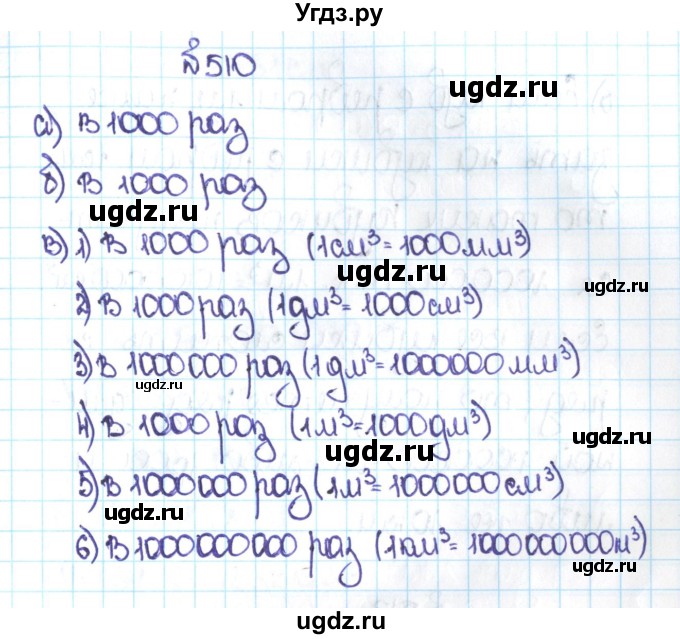 Угдз.ру
№510
ugdz.ru
а) В 1000 раз
б) В 1000 раз
ugdz.ru
в) 1) В 1000 раз (1см³=1000мм³)
ugdz.ru
ugdz.ru
2) В 1000 раз (1дм³=1000см³)
3) В 1000 000 раз (1дм³=1000000мм³)
ugdz.ru
ugdz.ru
4) В 1000 раз (1м³=1000дм³)
ugdz.ru
ugdz.ru
5) В 1000000 раз (1м³=1000000см³)
ugdz.ru
6) В 1000000000 раз (1км³=1000000000м³)
ugdz.ru
ugdz.ru